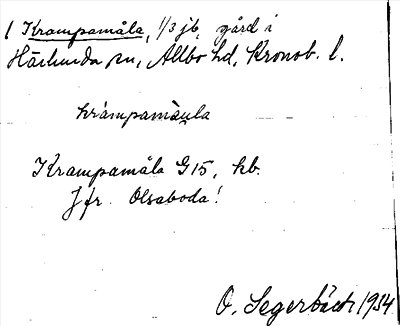 1 Krampamåla, 1/3 jb, gård i
Härlunda sn, Allbo hd, Kronob. l.
krampamåula
Krampamåla G15, hb.
Jfr Olsaboda!
O. Segerbäck 1934